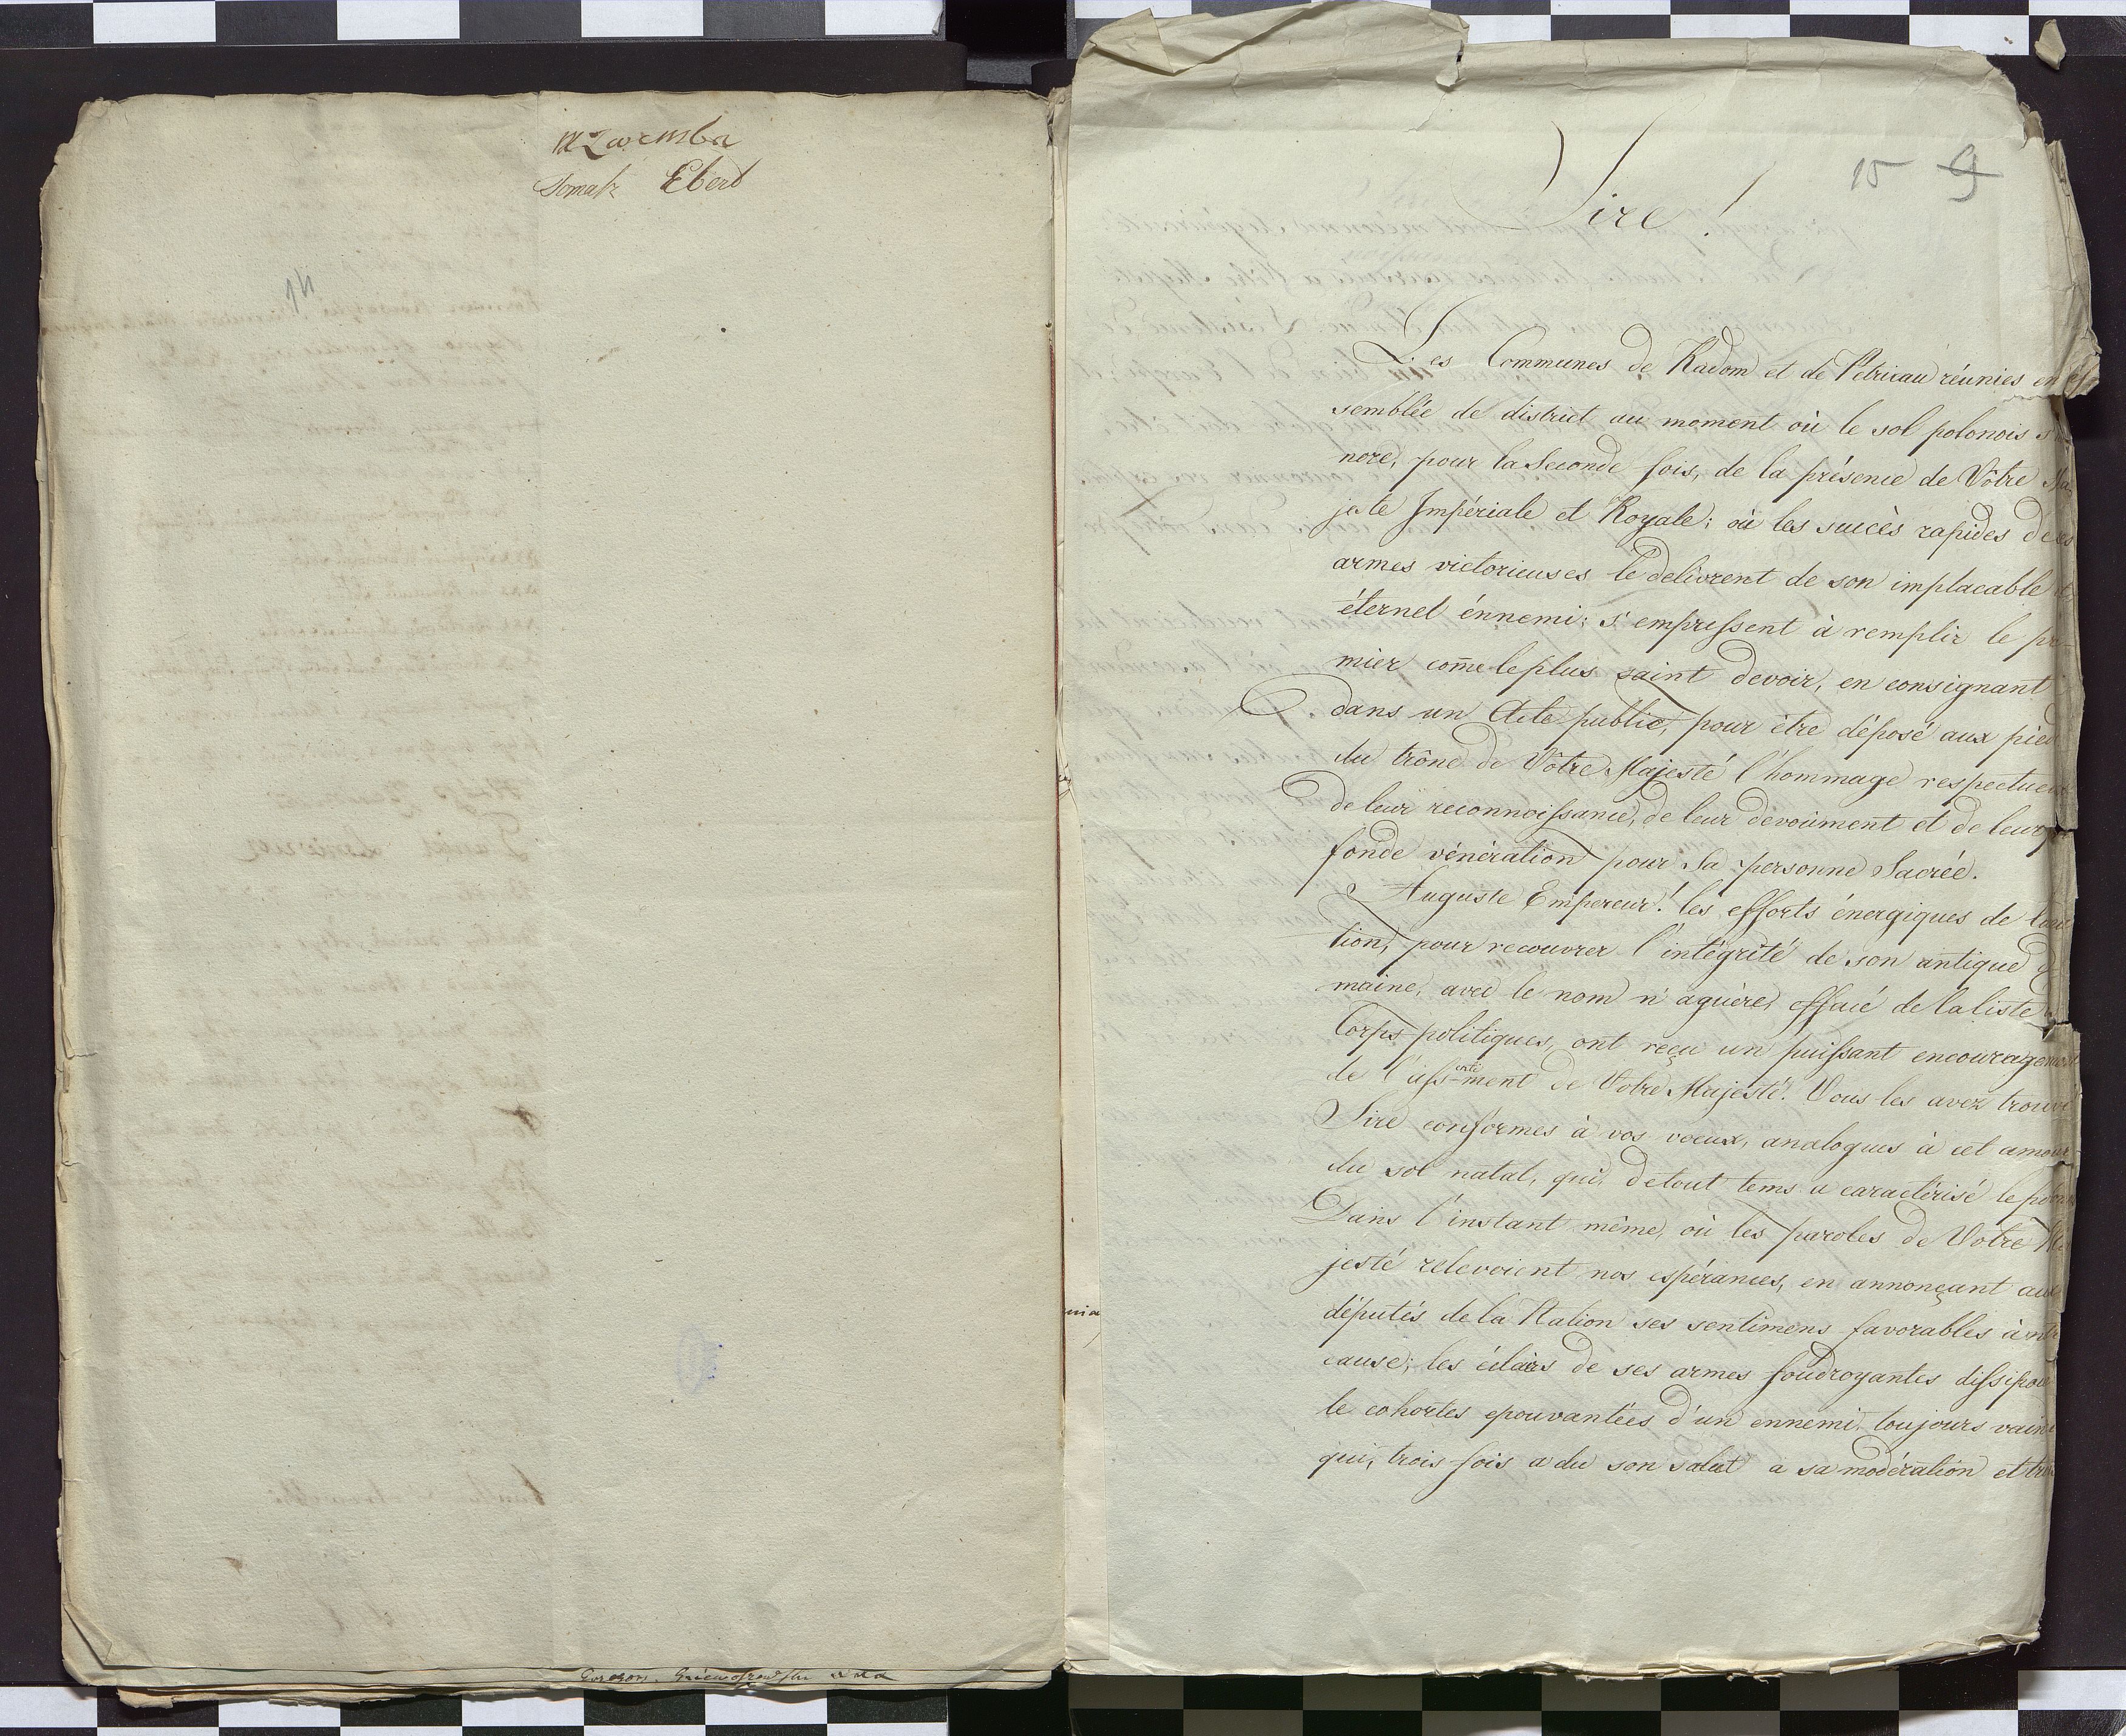 M Zaremba
Tomasz Ebert
14
15 9
Sire!
Les Communes de Radom et de Petricau réunies en
semblée de district au moment où le sol polonois s'
nore, pour la Seconde fois, de la présence de Vôtre Ma
jeste Impériale et Royale; où les succès rapides de ses
armes victorieuses le delivrent de son implacable
éternel énnemi; s'empressent à remplir le pr
mier come le plus saint devoir, en consignant
dans un Acte public, pour être déposé aux pied
du trône de Vôtre Majesté l'hommage respectueux
de leur reconnoissance, de leur devoûment et de leur
fonde vénération pour Sa personne Sacrée.
Auguste Empereur! les efforts énergiques de la
tion, pour recouvrer l'intégrité de son antique
maine, avec le nom n'aguère, effacé de la liste
Corps politiques, ont reçu un puissant encouragement
de l'assentiment de Votre Majesté. Vous les avez trouvé
Sire conformes à vos voeux, analogues à cet amour
du sol natal, qui, de tout tems a caractérisé le
Dans l'instant même, où les paroles de Votre Ma
jesté relevoient nos espérances, en annonçant aux
députés de la Nation ses sentimens favorables à
cause; les éclairs de ses armes foudroyantes dissipo
le cohortes epouvantées d'un ennemi, toujours vain
qui, trois fois a du son salut a sa modération et